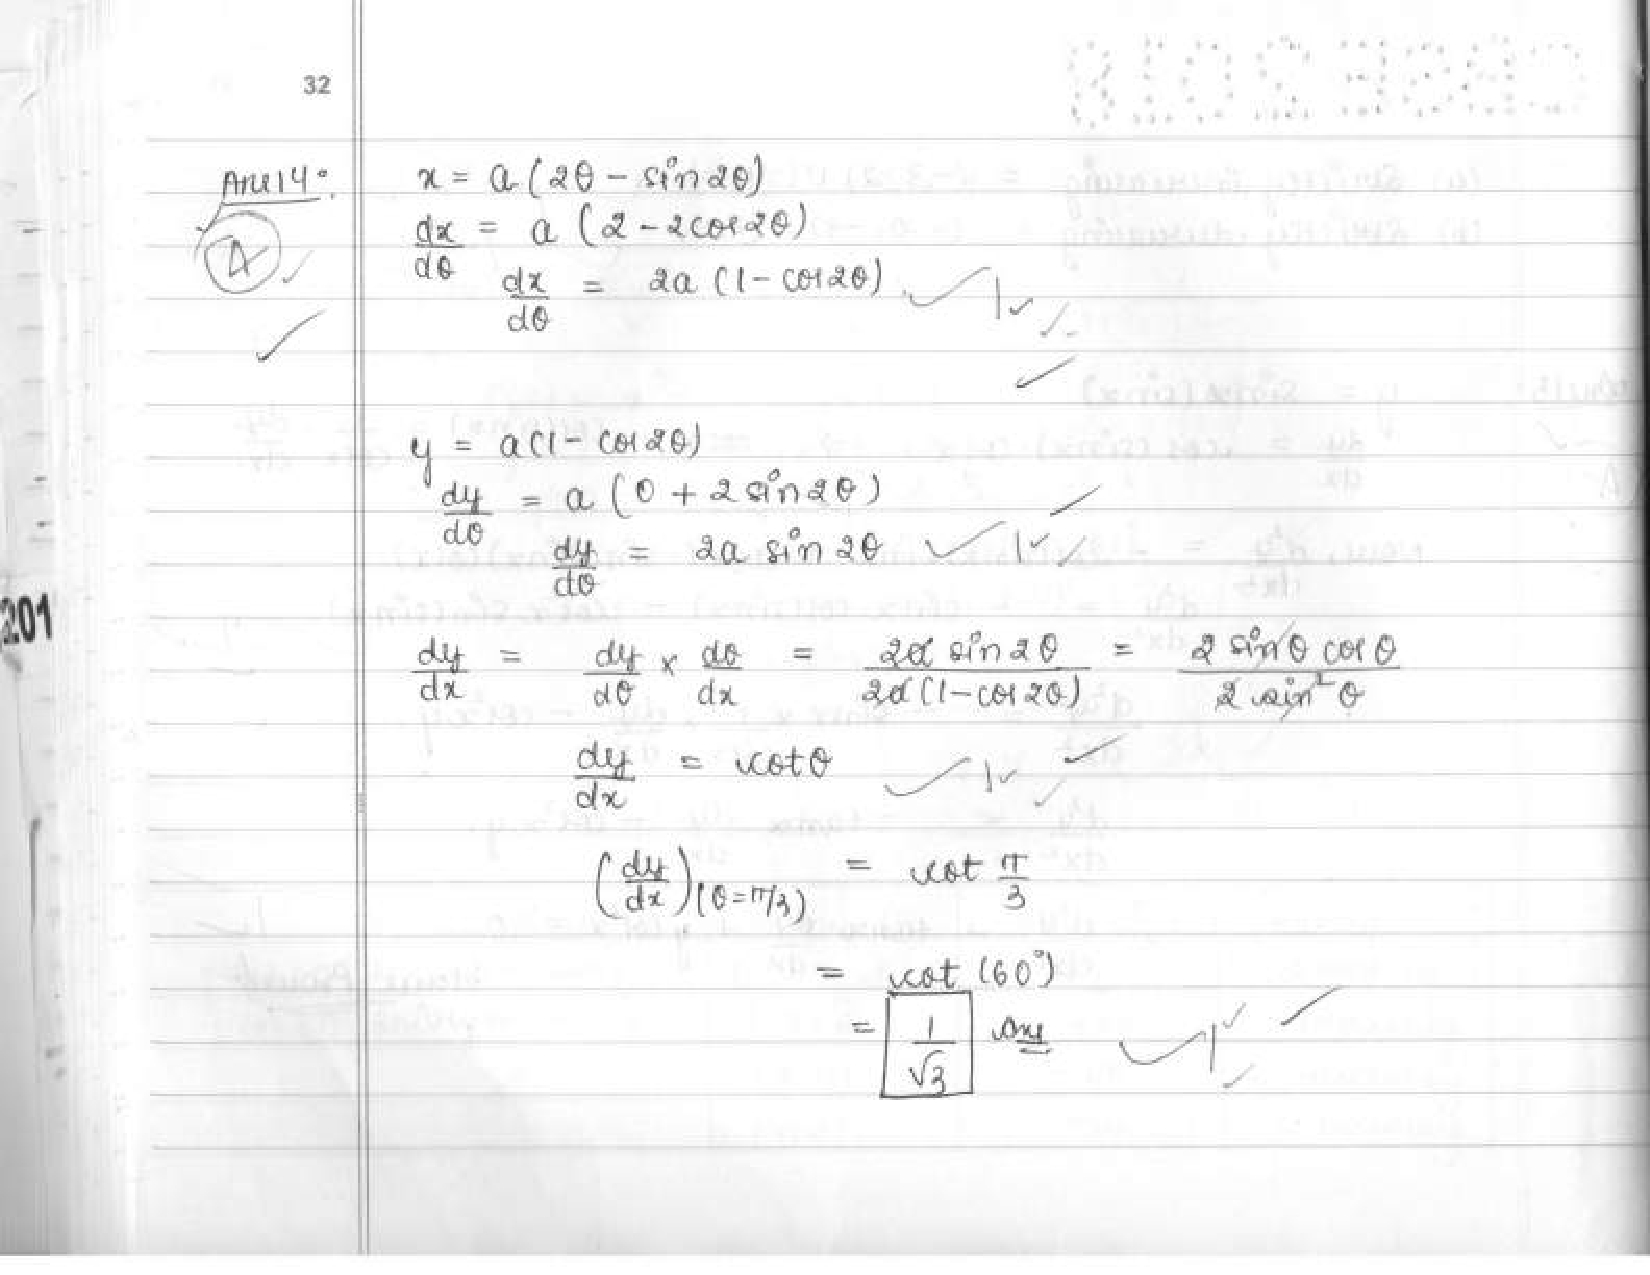 32
Ans 14:
x = a (2θ - sin 2θ)
dx/dθ = a (2 - 2cos 2θ)
dx/dθ = 2a (1 - cos 2θ) ✓ 1
y = a(1 - cos 2θ)
dy/dθ = a (0 + 2 sin 2θ)
dy/dθ = 2a sin 2θ ✓ 1
201
dy/dx = dy/dθ × dθ/dx = 2a sin 2θ / 2a (1 - cos 2θ) = 2 sin θ cos θ / 2 sin² θ
dy/dx = cot θ ✓ 1
(dy/dx)(θ = π/3) = cot π/3
= cot (60°)
= 1/√3 Ans ✓ 1